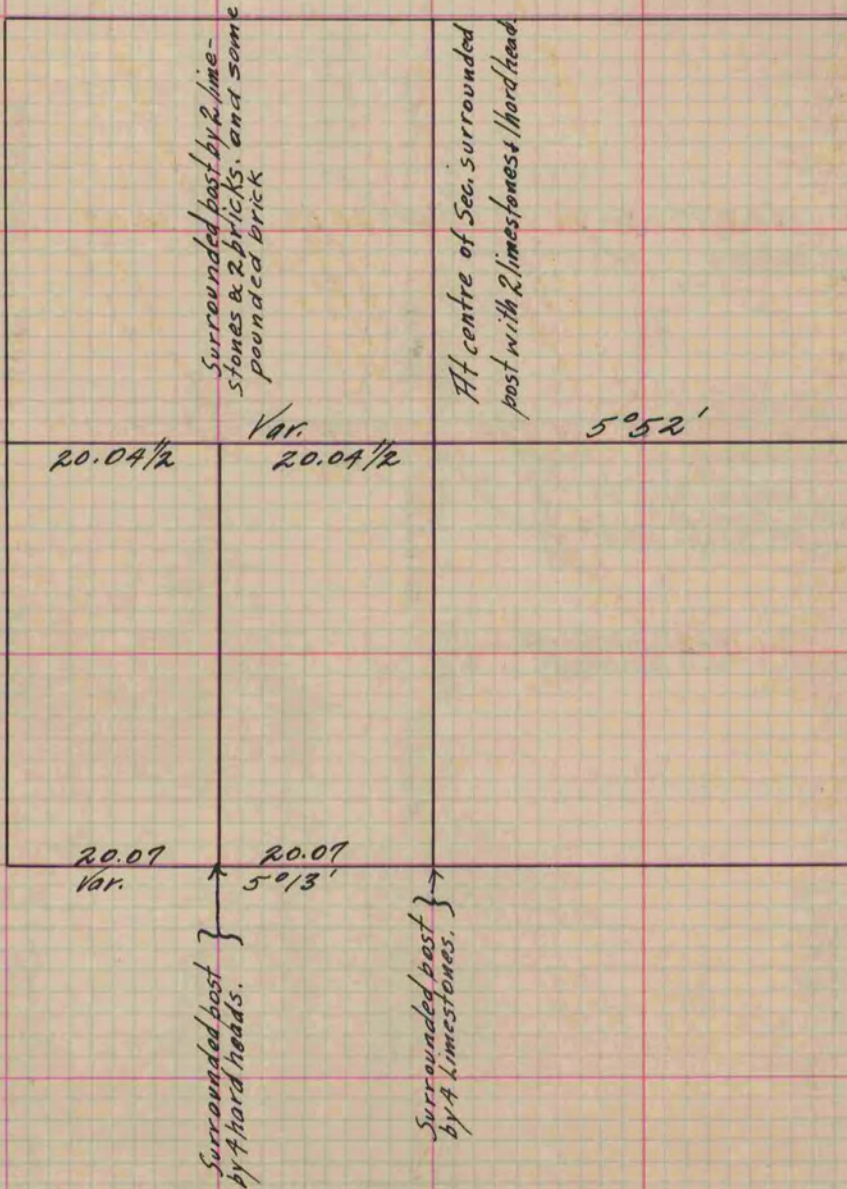 Surrounded post by 2 lime-
stones & 2 bricks. and some
pounded brick
At centre of Sec. surrounded
post with 2 limestones & 1 hard head.
Var. 5°52'
20.04 1/2 20.04 1/2
20.07 20.07
Var. 5°13'
Surrounded post
by 4 hard heads.
Surrounded post
by 4 Limestones.